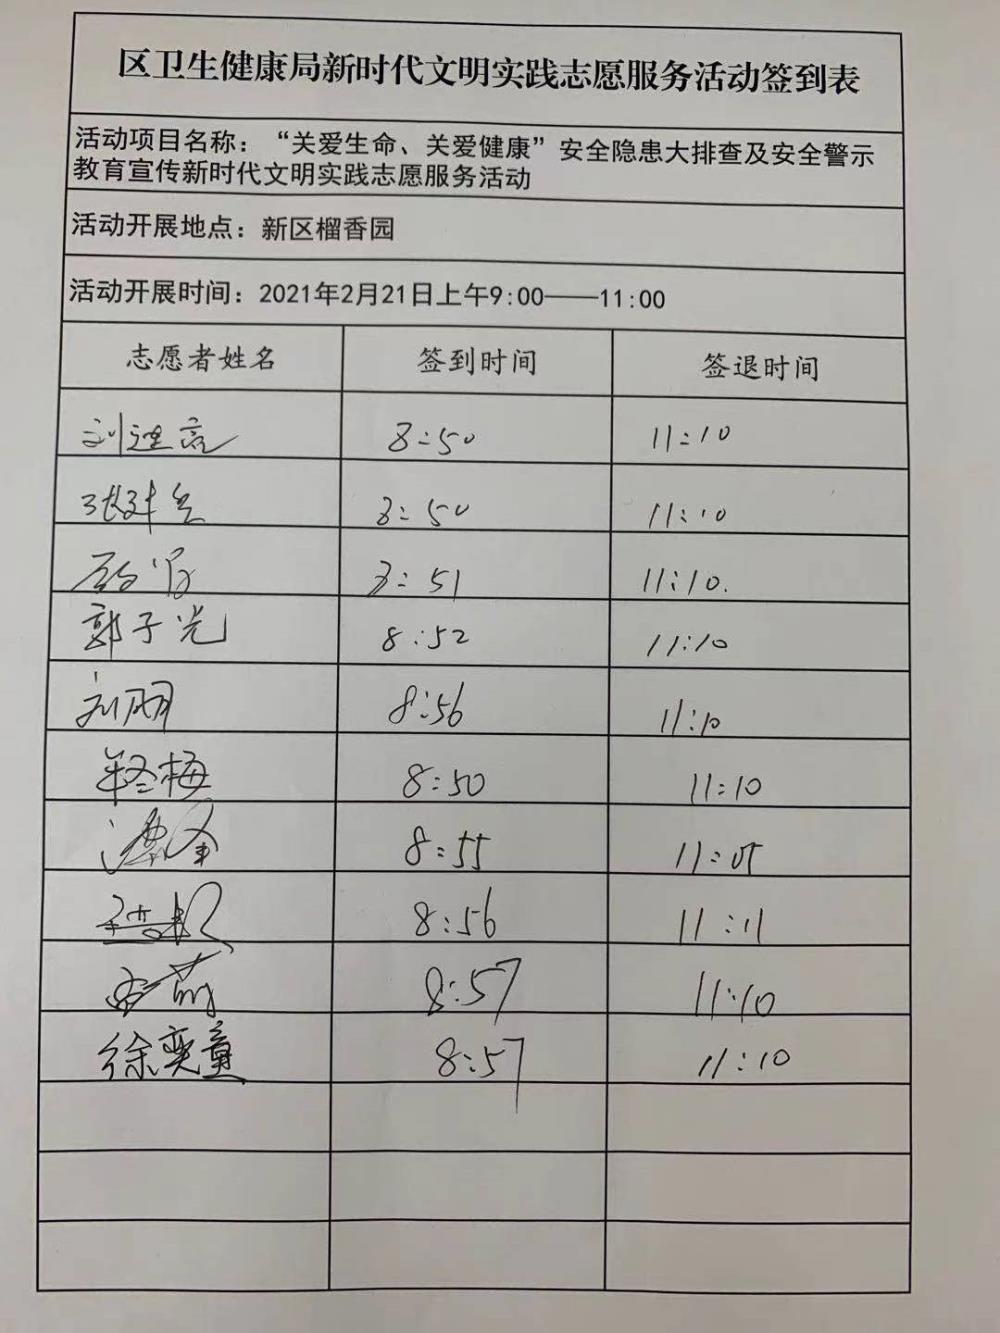 区卫生健康局新时代文明实践志愿服务活动签到表
活动项目名称：“关爱生命、关爱健康”安全隐患大排查及安全警示
教育宣传新时代文明实践志愿服务活动
活动开展地点：新区榴香园
活动开展时间：2021年2月21日上午9:00——11:00
志愿者姓名 签到时间 签退时间
8:50 11:10
8:50 11:10
8:51 11:10.
郭子光 8:52 11:10
刘明 8:56 11:10
8:50 11:10
8:55 11:05
8:56 11:11
8:57 11:10
徐奕童 8:57 11:10